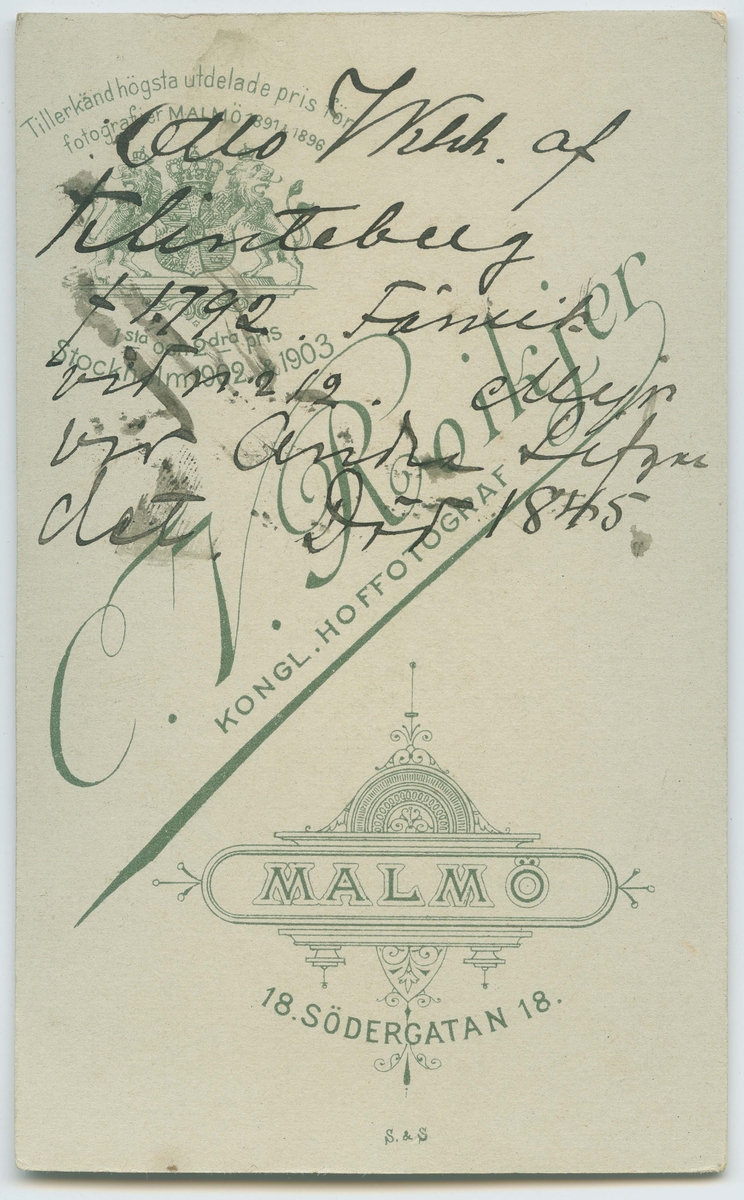 Tillerkänd högsta utdelade pris för
fotografier MALMÖ 1891 & 1896
1sta och 2dra pris
Stockholm 1902 & 1903
Otto Wilh. af
Klinteberg
f 1792. Fänrik
vid 1812. Major
vid Andra Lifgre
det. Död 1845
C.V. Roikjer
KONGL. HOFFOTOGRAF
MALMÖ
18. SÖDERGATAN 18.
S. & S